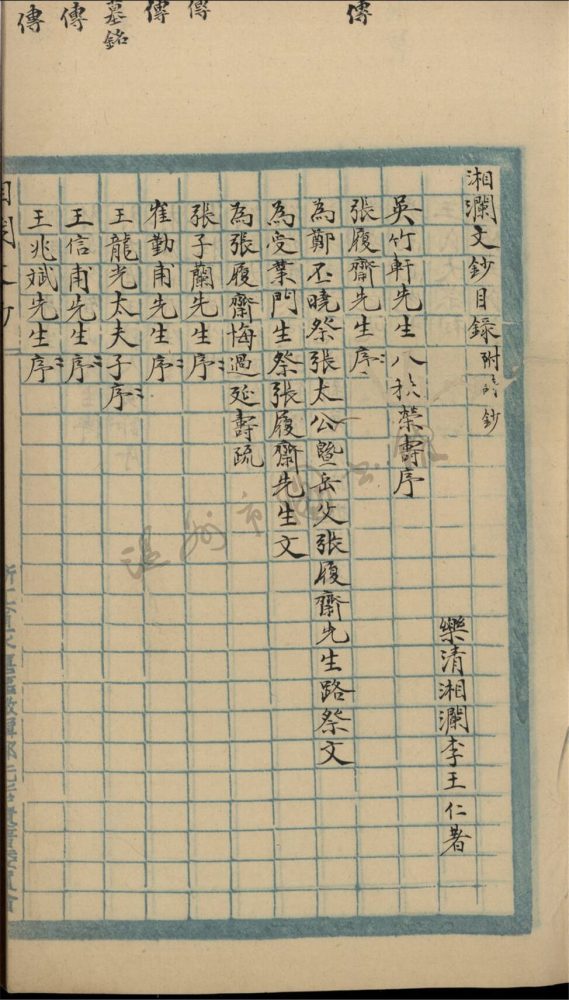 湘瀾文鈔目錄 附詩鈔
樂清湘瀾李王仁著
吳竹軒先生八秩榮壽序
張履齋先生序
傳
為鄭丕曉祭張太公暨岳父張履齋先生路祭文
為受業門生祭張履齋先生文
為張履齋悔過延壽疏
張子蘭先生序
傳
崔勤甫先生序
傳
王龍光太夫子序
墓銘
王信甫先生序
傳
王兆斌先生序
傳
溫州市圖書館